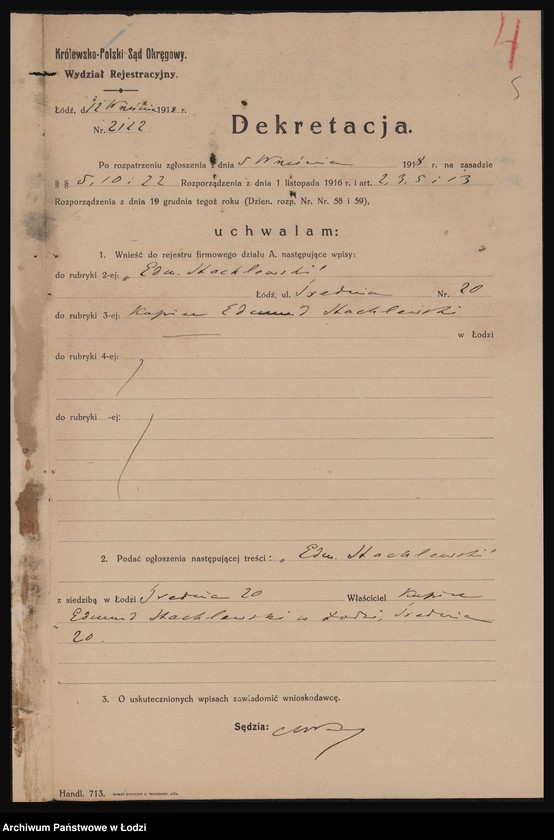 4
5
Królewsko-Polski Sąd Okręgowy.
Wydział Rejestracyjny.
Łódź, d. 12 Września 1918 r.
Nr. 2122
Dekretacja.
Po rozpatrzeniu zgłoszenia z dnia 5 Września 1918 r. na zasadzie
§ § 5, 10 i 22 Rozporządzenia z dnia 1 listopada 1916 r. i art. 2, 3, 5 i 13
Rozporządzenia z dnia 19 grudnia tegoż roku (Dzien. rozp. Nr. Nr. 58 i 59),
uchwalam:
1. Wnieść do rejestru firmowego działu A. następujące wpisy:
do rubryki 2-ej: „Edm. Stachlewski"
Łódź, ul. Średnia Nr. 20
do rubryki 3-ej: Kupiec Edmund Stachlewski
w Łodzi
do rubryki 4-ej:
do rubryki -ej:
2. Podać ogłoszenia następującej treści: „Edm. Stachlewski"
z siedzibą w Łodzi Średnia 20 Właściciel kupiec
Edmund Stachlewski w Łodzi, Średnia
20.
3. O uskutecznionych wpisach zawiadomić wnioskodawcę.
Sędzia:
Handl. 713.
Archiwum Państwowe w Łodzi